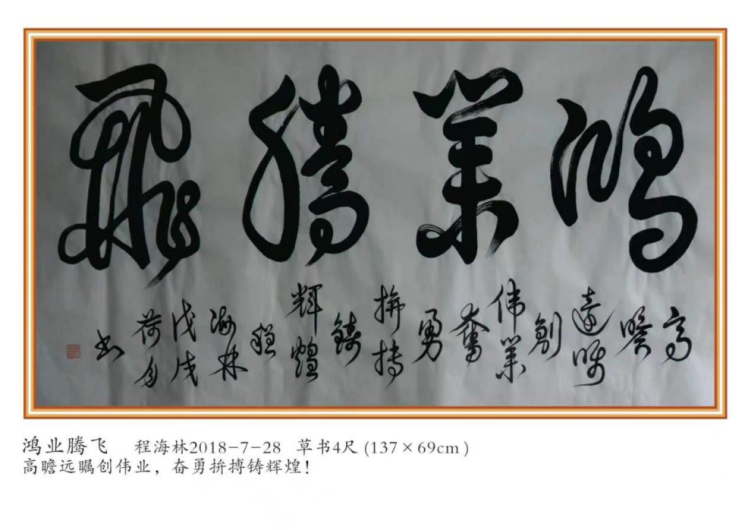 鴻業騰飛
高瞻遠矚創偉業奮勇拚搏鑄輝煌程海林戊戌荷月书
鸿业腾飞 程海林2018-7-28 草书4尺 (137×69cm)
高瞻远瞩创伟业，奋勇拚搏铸辉煌！